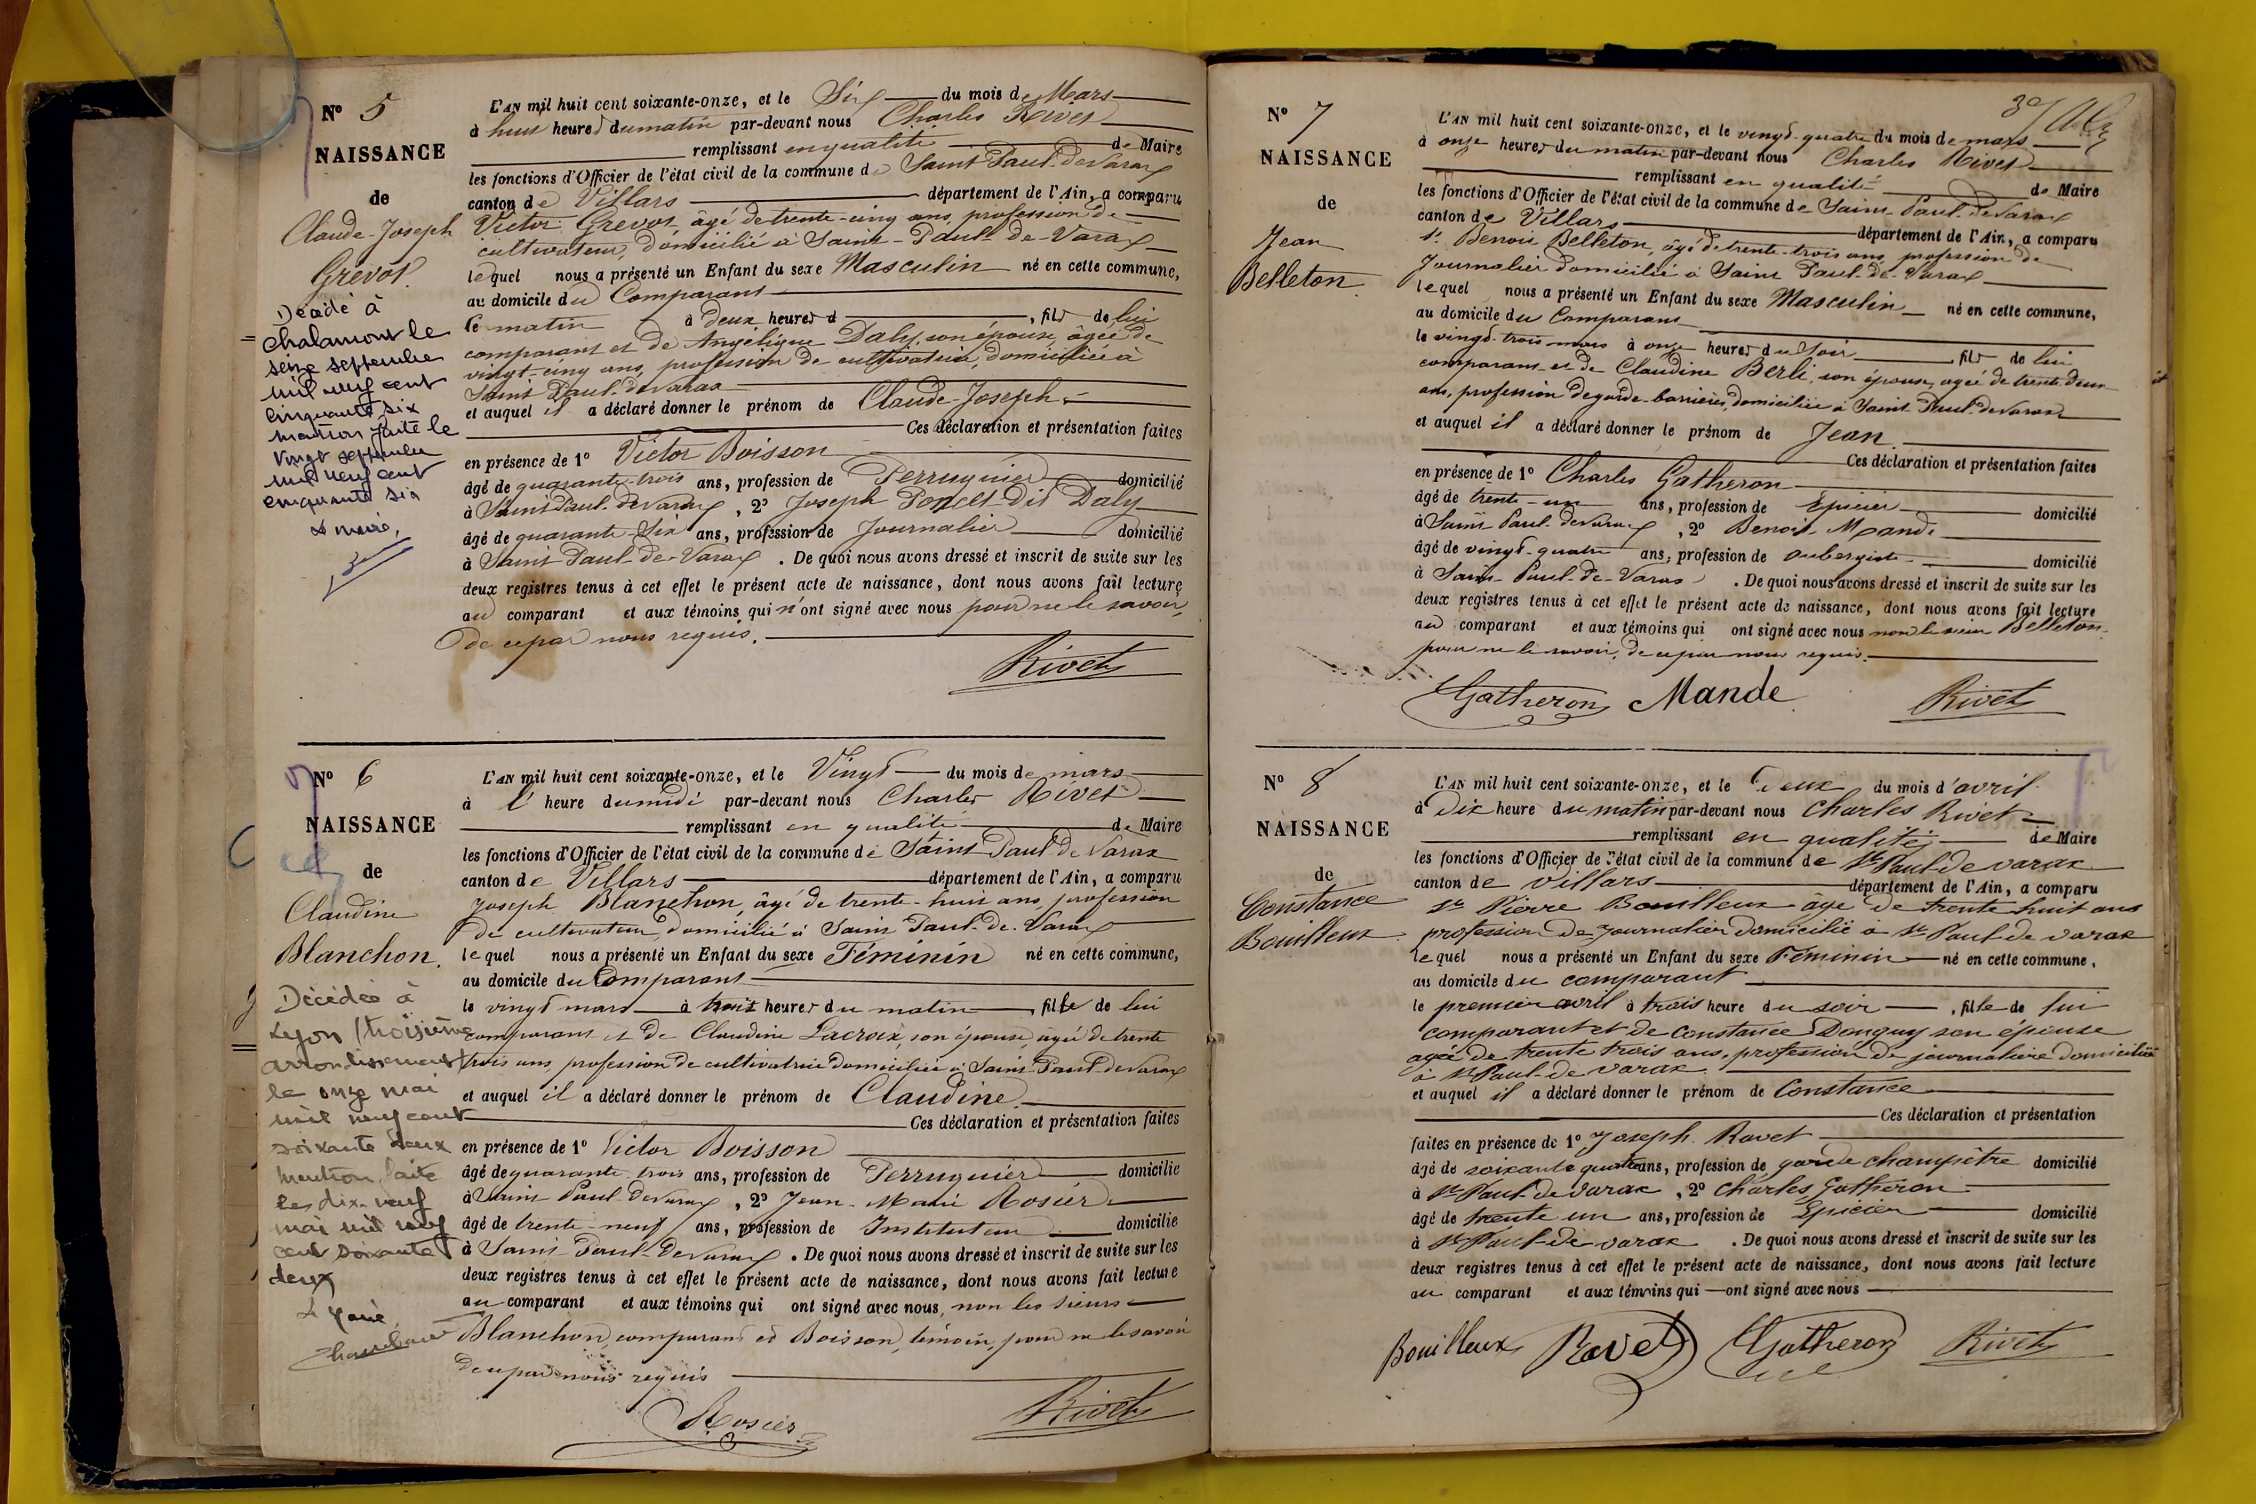 N° 5
NAISSANCE
de
Claude-Joseph
Grévot.
Décédé à
Chalamont le
seize septembre
mil neuf cent
cinquante six
mention faite le
vingt septembre
mil neuf cent
cinquante six
Le maire,
L'AN mil huit cent soixante-onze, et le Six du mois de Mars
à huit heures du matin par-devant nous Charles Rivet
remplissant en qualité de Maire
les fonctions d'Officier de l'état civil de la commune de Saint-Paul-de-Varax
canton de Villars département de l'Ain, a comparu
Victor Grévot, âgé de trente-cinq ans, profession de
cultivateur, domicilié à Saint-Paul-de-Varax
lequel nous a présenté un Enfant du sexe Masculin né en cette commune,
au domicile du Comparant
le matin à deux heures d , fils de lui
comparant et de Angélique Daly, son épouse, âgée de
vingt-cinq ans, profession de cultivatrice, domiciliée à
Saint-Paul-de-Varax
et auquel il a déclaré donner le prénom de Claude-Joseph.
Ces déclaration et présentation faites
en présence de 1° Victor Boisson
âgé de quarante-trois ans, profession de Perruquier domicilié
à Saint-Paul-de-Varax, 2° Joseph Poncet-dit Daly
âgé de quarante-six ans, profession de Journalier domicilié
à Saint-Paul-de-Varax. De quoi nous avons dressé et inscrit de suite sur les
deux registres tenus à cet effet le présent acte de naissance, dont nous avons fait lecture
au comparant et aux témoins qui n'ont signé avec nous pour ne le savoir,
de ce par nous requis.
Rivet
N° 6
NAISSANCE
de
Claudine
Blanchon.
Décédée à
Lyon (troisième
arrondissement)
le onze mai
mil neuf cent
soixante deux
mention faite
le dix-neuf
mai mil neuf
cent soixante
deux
L'AN mil huit cent soixante-onze, et le Vingt du mois de mars
à l' heure du midi par-devant nous Charles Rivet
remplissant en qualité de Maire
les fonctions d'Officier de l'état civil de la commune de Saint-Paul-de-Varax
canton de Villars département de l'Ain, a comparu
Joseph Blanchon, âgé de trente-huit ans, profession
de cultivateur, domicilié à Saint-Paul-de-Varax
lequel nous a présenté un Enfant du sexe Féminin né en cette commune,
au domicile du Comparant
le vingt mars à trois heures du matin, fille de lui
comparant et de Claudine Lacroix, son épouse, âgée de trente
trois ans, profession de cultivatrice domiciliée à Saint-Paul-de-Varax
et auquel il a déclaré donner le prénom de Claudine.
Ces déclaration et présentation faites
en présence de 1° Victor Boisson
âgé de quarante-trois ans, profession de Perruquier domicilié
à Saint-Paul-de-Varax, 2° Jean-Marie Rosier
âgé de trente-neuf ans, profession de Instituteur domicilié
à Saint-Paul-de-Varax. De quoi nous avons dressé et inscrit de suite sur les
deux registres tenus à cet effet le présent acte de naissance, dont nous avons fait lecture
au comparant et aux témoins qui ont signé avec nous, non les sieurs
Blanchon, comparant et Boisson, témoin, pour ne le savoir
de ce par nous requis
Rosier Rivet
N° 7
NAISSANCE
de
Jean
Belleton.
L'AN mil huit cent soixante-onze, et le vingt-quatre du mois de mars
à onze heures du matin par-devant nous Charles Rivet
remplissant en qualité de Maire
les fonctions d'Officier de l'état civil de la commune de Saint-Paul-de-Varax
canton de Villars département de l'Ain, a comparu
Sr. Benoit Belleton, âgé de trente-trois ans, profession de
Journalier domicilié à Saint-Paul-de-Varax
lequel nous a présenté un Enfant du sexe Masculin né en cette commune,
au domicile du Comparant
le vingt-trois mars à onze heures du soir fils de lui
comparant et de Claudine Berli, son épouse, âgée de trente-deux
ans, profession de garde-barrières, domiciliée à Saint-Paul-de-Varax
et auquel il a déclaré donner le prénom de Jean.
Ces déclaration et présentation faites
en présence de 1° Charles Gatheron
âgé de trente-un ans, profession de Epicier domicilié
à Saint-Paul-de-Varax, 2° Benoit Mande
âgé de vingt-quatre ans, profession de aubergiste domicilié
à Saint-Paul-de-Varax. De quoi nous avons dressé et inscrit de suite sur les
deux registres tenus à cet effet le présent acte de naissance, dont nous avons fait lecture
au comparant et aux témoins qui ont signé avec nous non le sieur Belleton
pour ne le savoir, de ce par nous requis.
Gatheron Mande Rivet
N° 8
NAISSANCE
de
Constance
Bouilleux
L'AN mil huit cent soixante-onze, et le Deux du mois d'avril
à Dix heure du matin par-devant nous Charles Rivet
remplissant en qualité de Maire
les fonctions d'Officier de l'état civil de la commune de St Paul de Varax
canton de Villars département de l'Ain, a comparu
Sr Pierre Bouilleux âgé de trente huit ans
profession de Journalier domicilié à St Paul de Varax
lequel nous a présenté un Enfant du sexe Féminin né en cette commune,
au domicile du comparant
le premier avril à trois heure du soir, fille de lui
comparant et de Constance Donguy son épouse
agée de trente trois ans, profession de journalière domiciliée
à St Paul de Varax
et auquel il a déclaré donner le prénom de Constance
Ces déclaration et présentation
faites en présence de 1° Joseph Ravet
âgé de soixante quatre ans, profession de garde champêtre domicilié
à St Paul-de Varax, 2° Charles Gatheron
âgé de trente un ans, profession de Epicier domicilié
à St Paul-de Varax. De quoi nous avons dressé et inscrit de suite sur les
deux registres tenus à cet effet le présent acte de naissance, dont nous avons fait lecture
au comparant et aux témoins qui ont signé avec nous
Bouilleux Ravet Gatheron Rivet